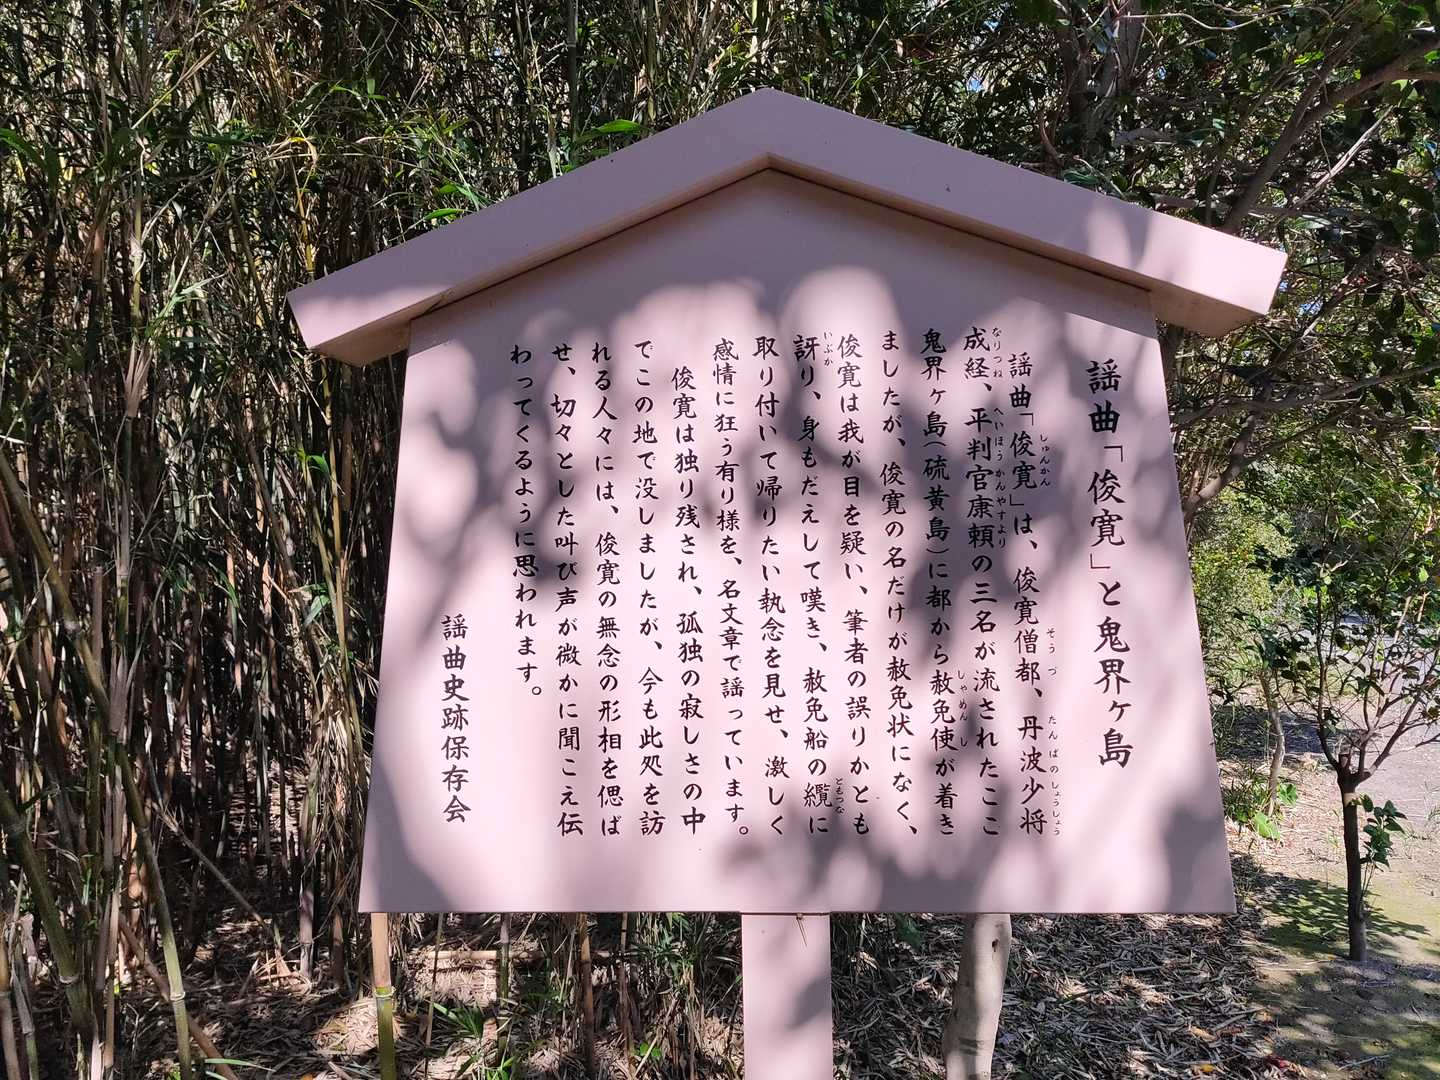 謡曲「俊寛」と鬼界ヶ島
謡曲「俊寛」は、俊寛僧都、丹波少将
しゅんかん そうづ たんばのしょうしょう
成経、平判官康頼の三名が流されたここ
なりつね へいほうかんやすより
鬼界ヶ島(硫黄島)に都から赦免使が着き
しゃめんし
ましたが、俊寛の名だけが赦免状になく、
俊寛は我が目を疑い、筆者の誤りかとも
訝り、身もだえして嘆き、赦免船の纜に
いぶか ともつな
取り付いて帰りたい執念を見せ、激しく
感情に狂う有り様を、名文章で謡っています。
俊寛は独り残され、孤独の寂しさの中
でこの地で没しましたが、今も此処を訪
れる人々には、俊寛の無念の形相を偲ば
せ、切々とした叫び声が微かに聞こえ伝
わってくるように思われます。
謡曲史跡保存会